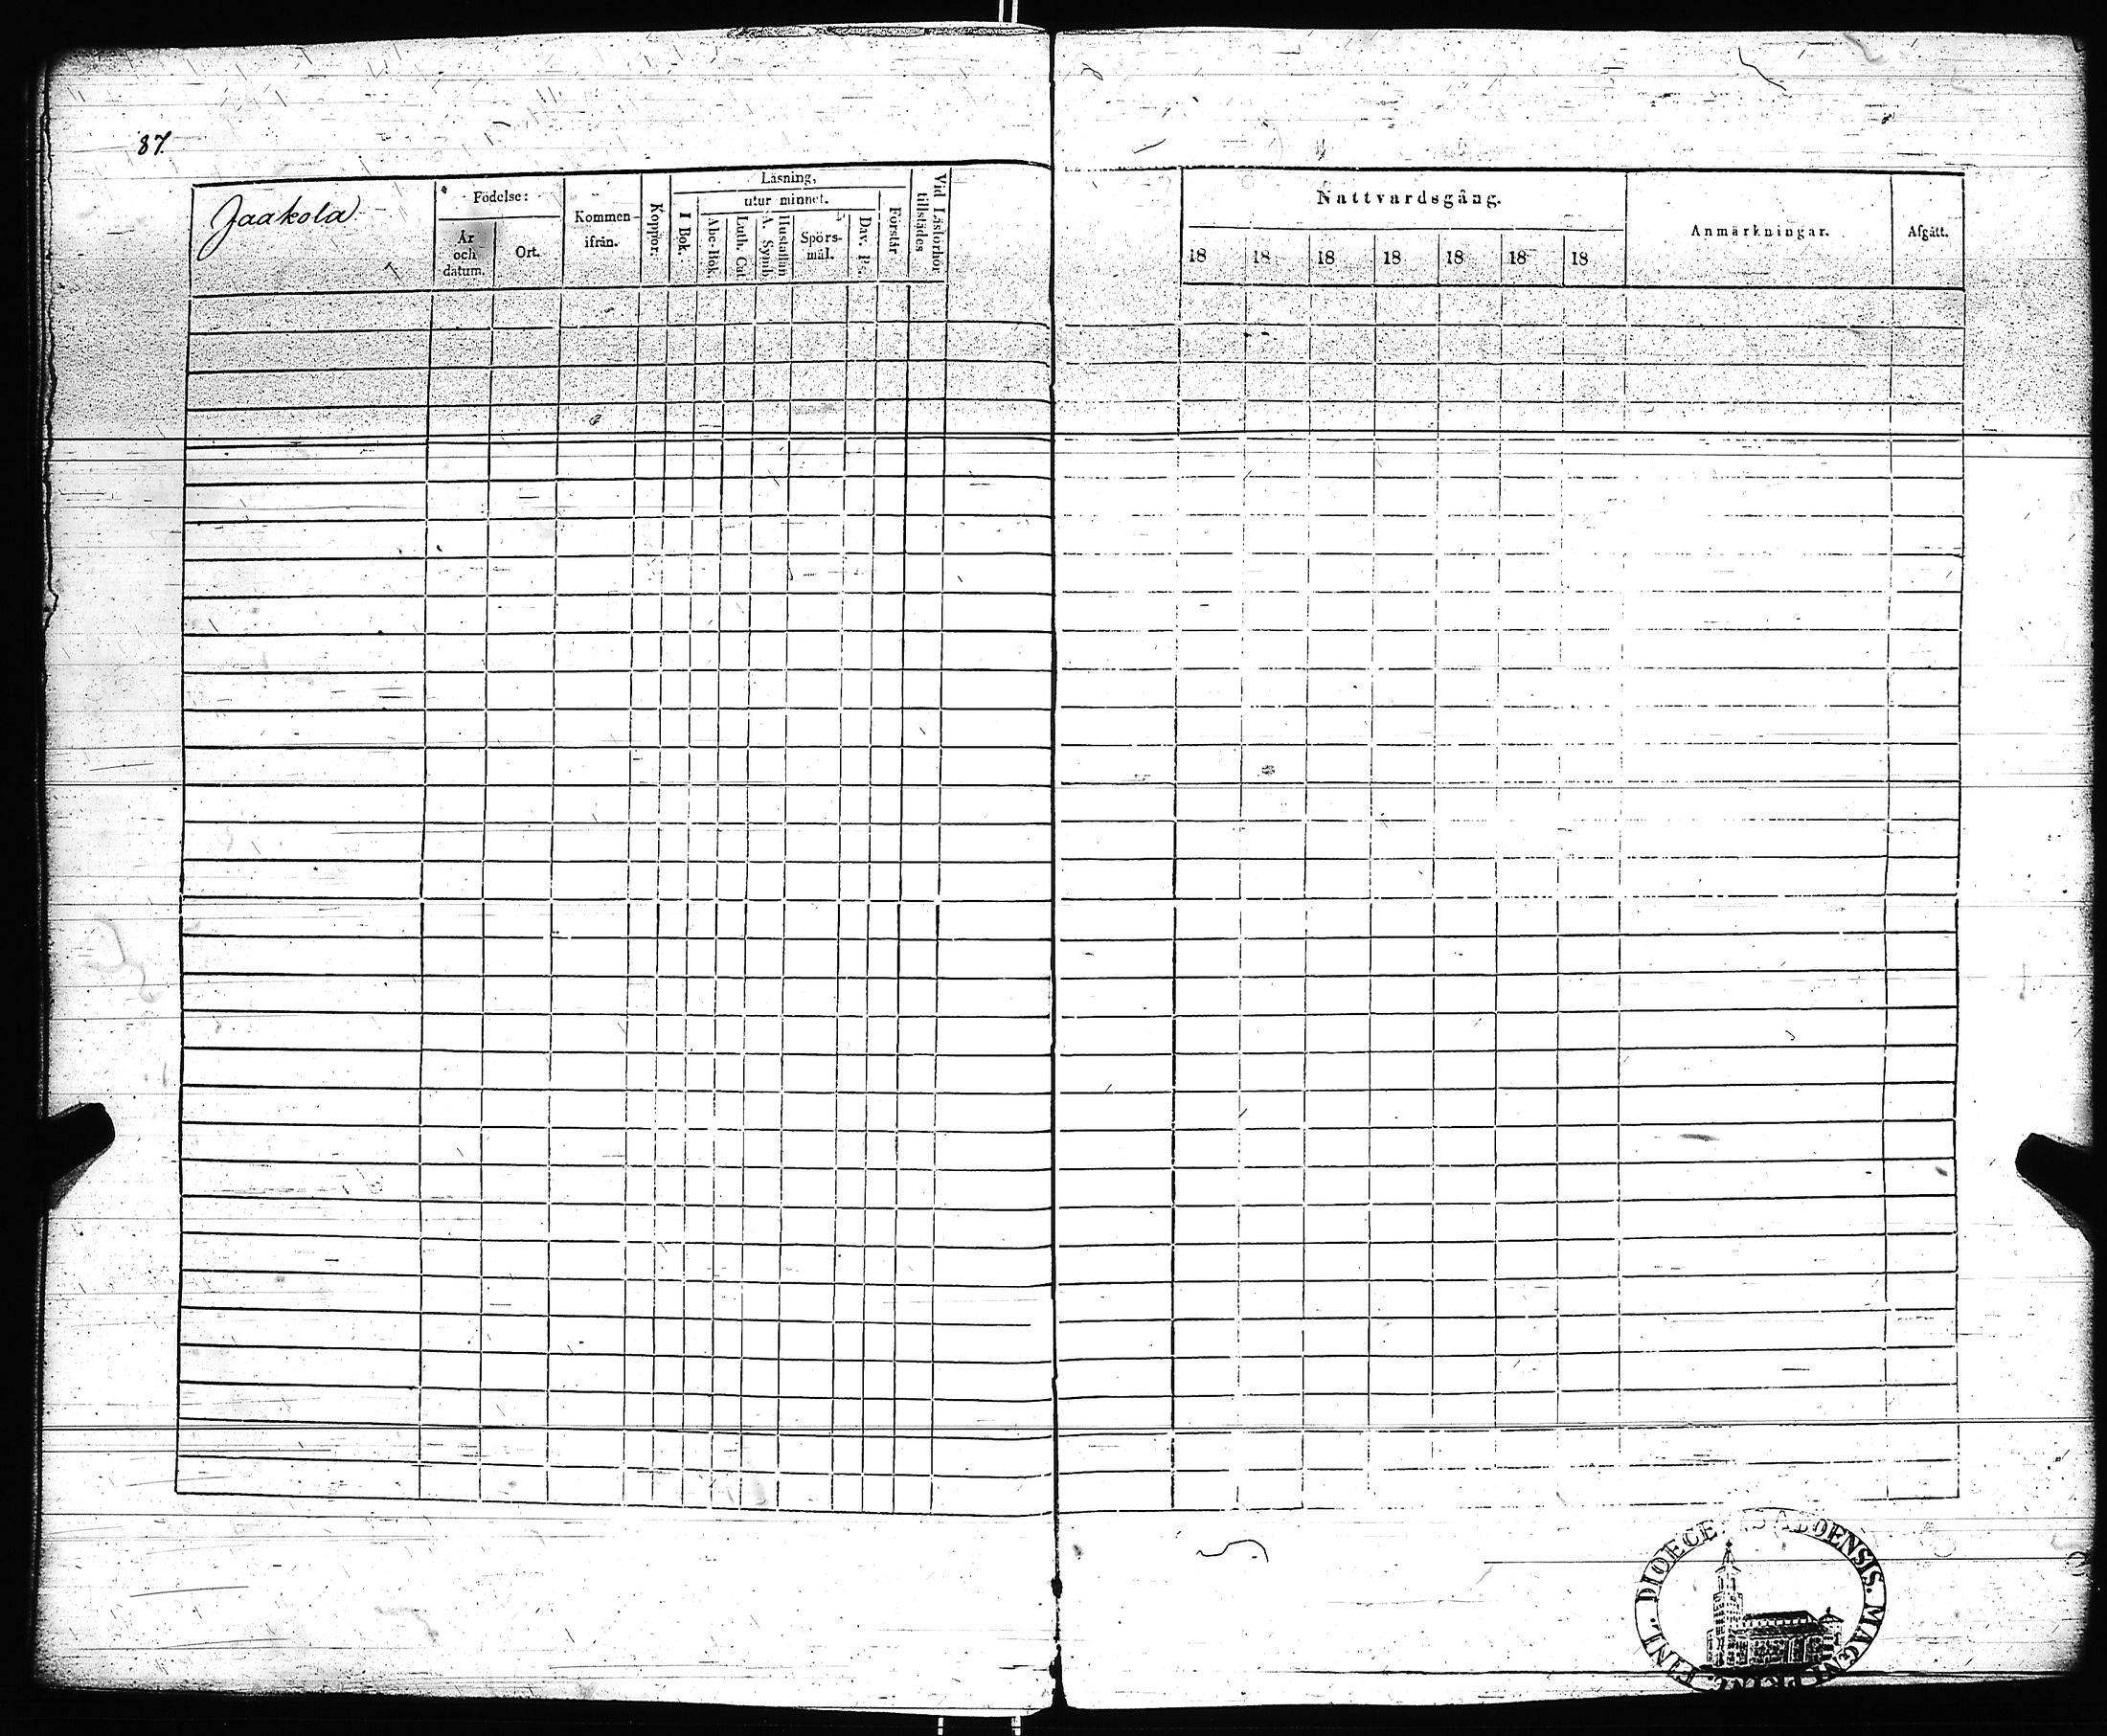 87.
Jaakola
Födelse:
År och datum.
Ort.
Kommen ifrån.
Koppor.
Läsning,
utur minnet.
I Bok.
Abc-Bok.
Luth. Cat.
A. Symb.
Hustaflan
Spörsmål.
Dav. Ps.
Förstår
Vid Läsförhör tillstädes
Nattvardsgång.
18 18 18 18 18 18 18
Anmärkningar.
Afgått.
FINL. DIOECE ABOENSIS. MAGNI PRINC.